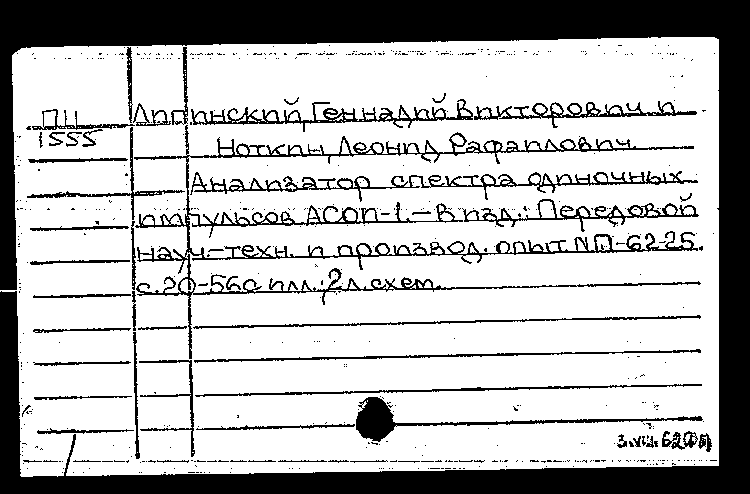 ПН Липинский, Геннадий Викторович и
1555 Ноткин, Леонид Рафаилович.
Анализатор спектра одиночных
импульсов АСОП-1. – В изд.: Передовой
науч.-техн. и производ. опыт №П-62-25.
с.20-56 с илл.; 2л.схем.
3.VIII.62